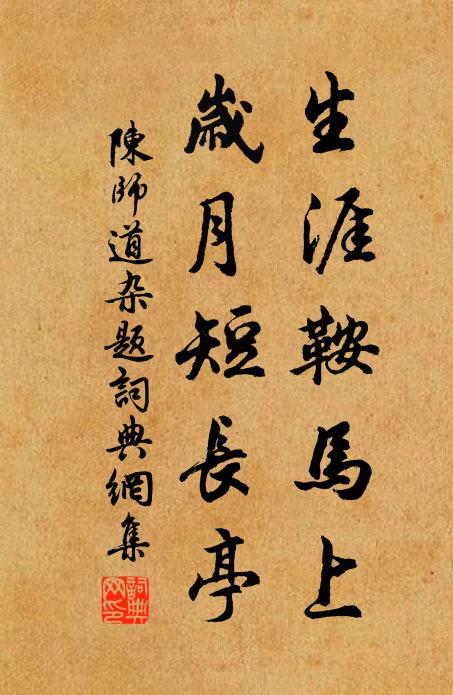 生涯鞍馬上
歲月短長亭
陳師道杂题詞典網集
詞典網印